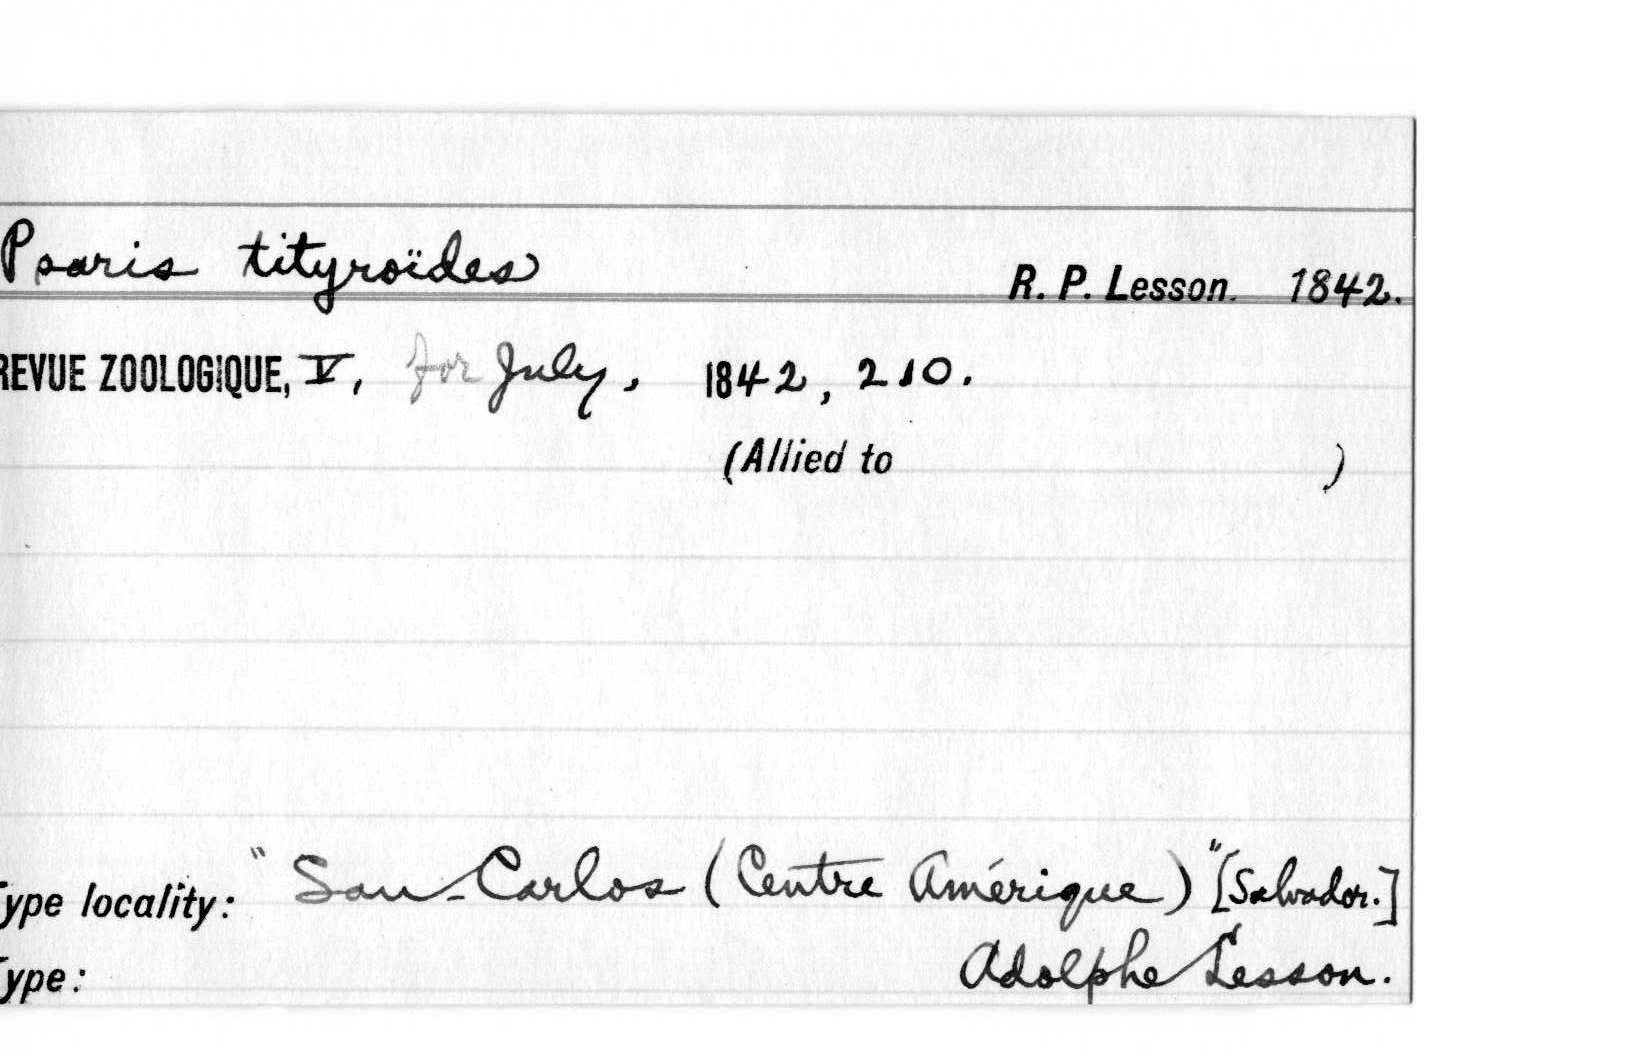 Psaris tityroïdes R. P. Lesson. 1842.
REVUE ZOOLOGIQUE, V, for July, 1842, 210.
(Allied to )
Type locality: "San-Carlos (Centre Amérique)" [Salvador.]
Type: Adolphe Lesson.